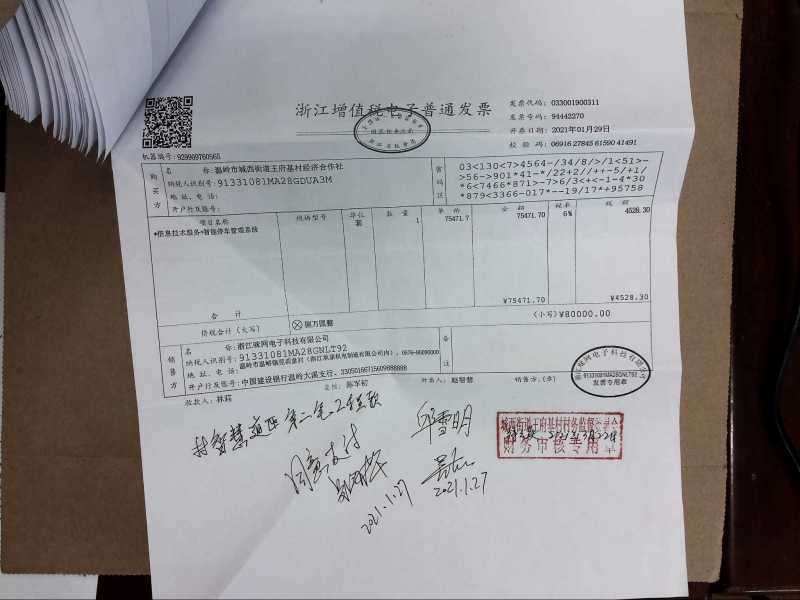 浙江增值税电子普通发票
发票代码：033001900311
发票号码：94442270
开票日期：2021年01月29日
校验码：06916 27845 61590 41491
机器编号：929909760565
购买方
名称：温岭市城西街道王府基村经济合作社
纳税人识别号：91331081MA28GDUA3M
地址、电话：
开户行及账号：
密码区
03<130<7>4564-/34/8/>/1<51>-
>56->901*41-*/22+2//++-5/+1/
*6<7466*871>-7>6/3<+<-1-4*30
*879<3366-017*--19/17*+95758
项目名称 规格型号 单位 数量 单价 金额 税率 税额
*信息技术服务*智能停车管理系统 套 1 75471.7 75471.70 6% 4528.30
合计 ¥75471.70 ¥4528.30
价税合计（大写） ⊗捌万圆整 （小写）¥80000.00
销售方
名称：浙江骏网电子科技有限公司
纳税人识别号：91331081MA28GNLT92
开户行及账号：中国建设银行温岭大溪支行，33050166715609888888
备注
收款人：林莉
复核：陈军初
开票人：赵智慧
销售方：（章）
91331081MA28GNLT92
发票专用章
村智慧
同意支付
邱雪明
2021.1.27
2021.1.27
财务审核专用章